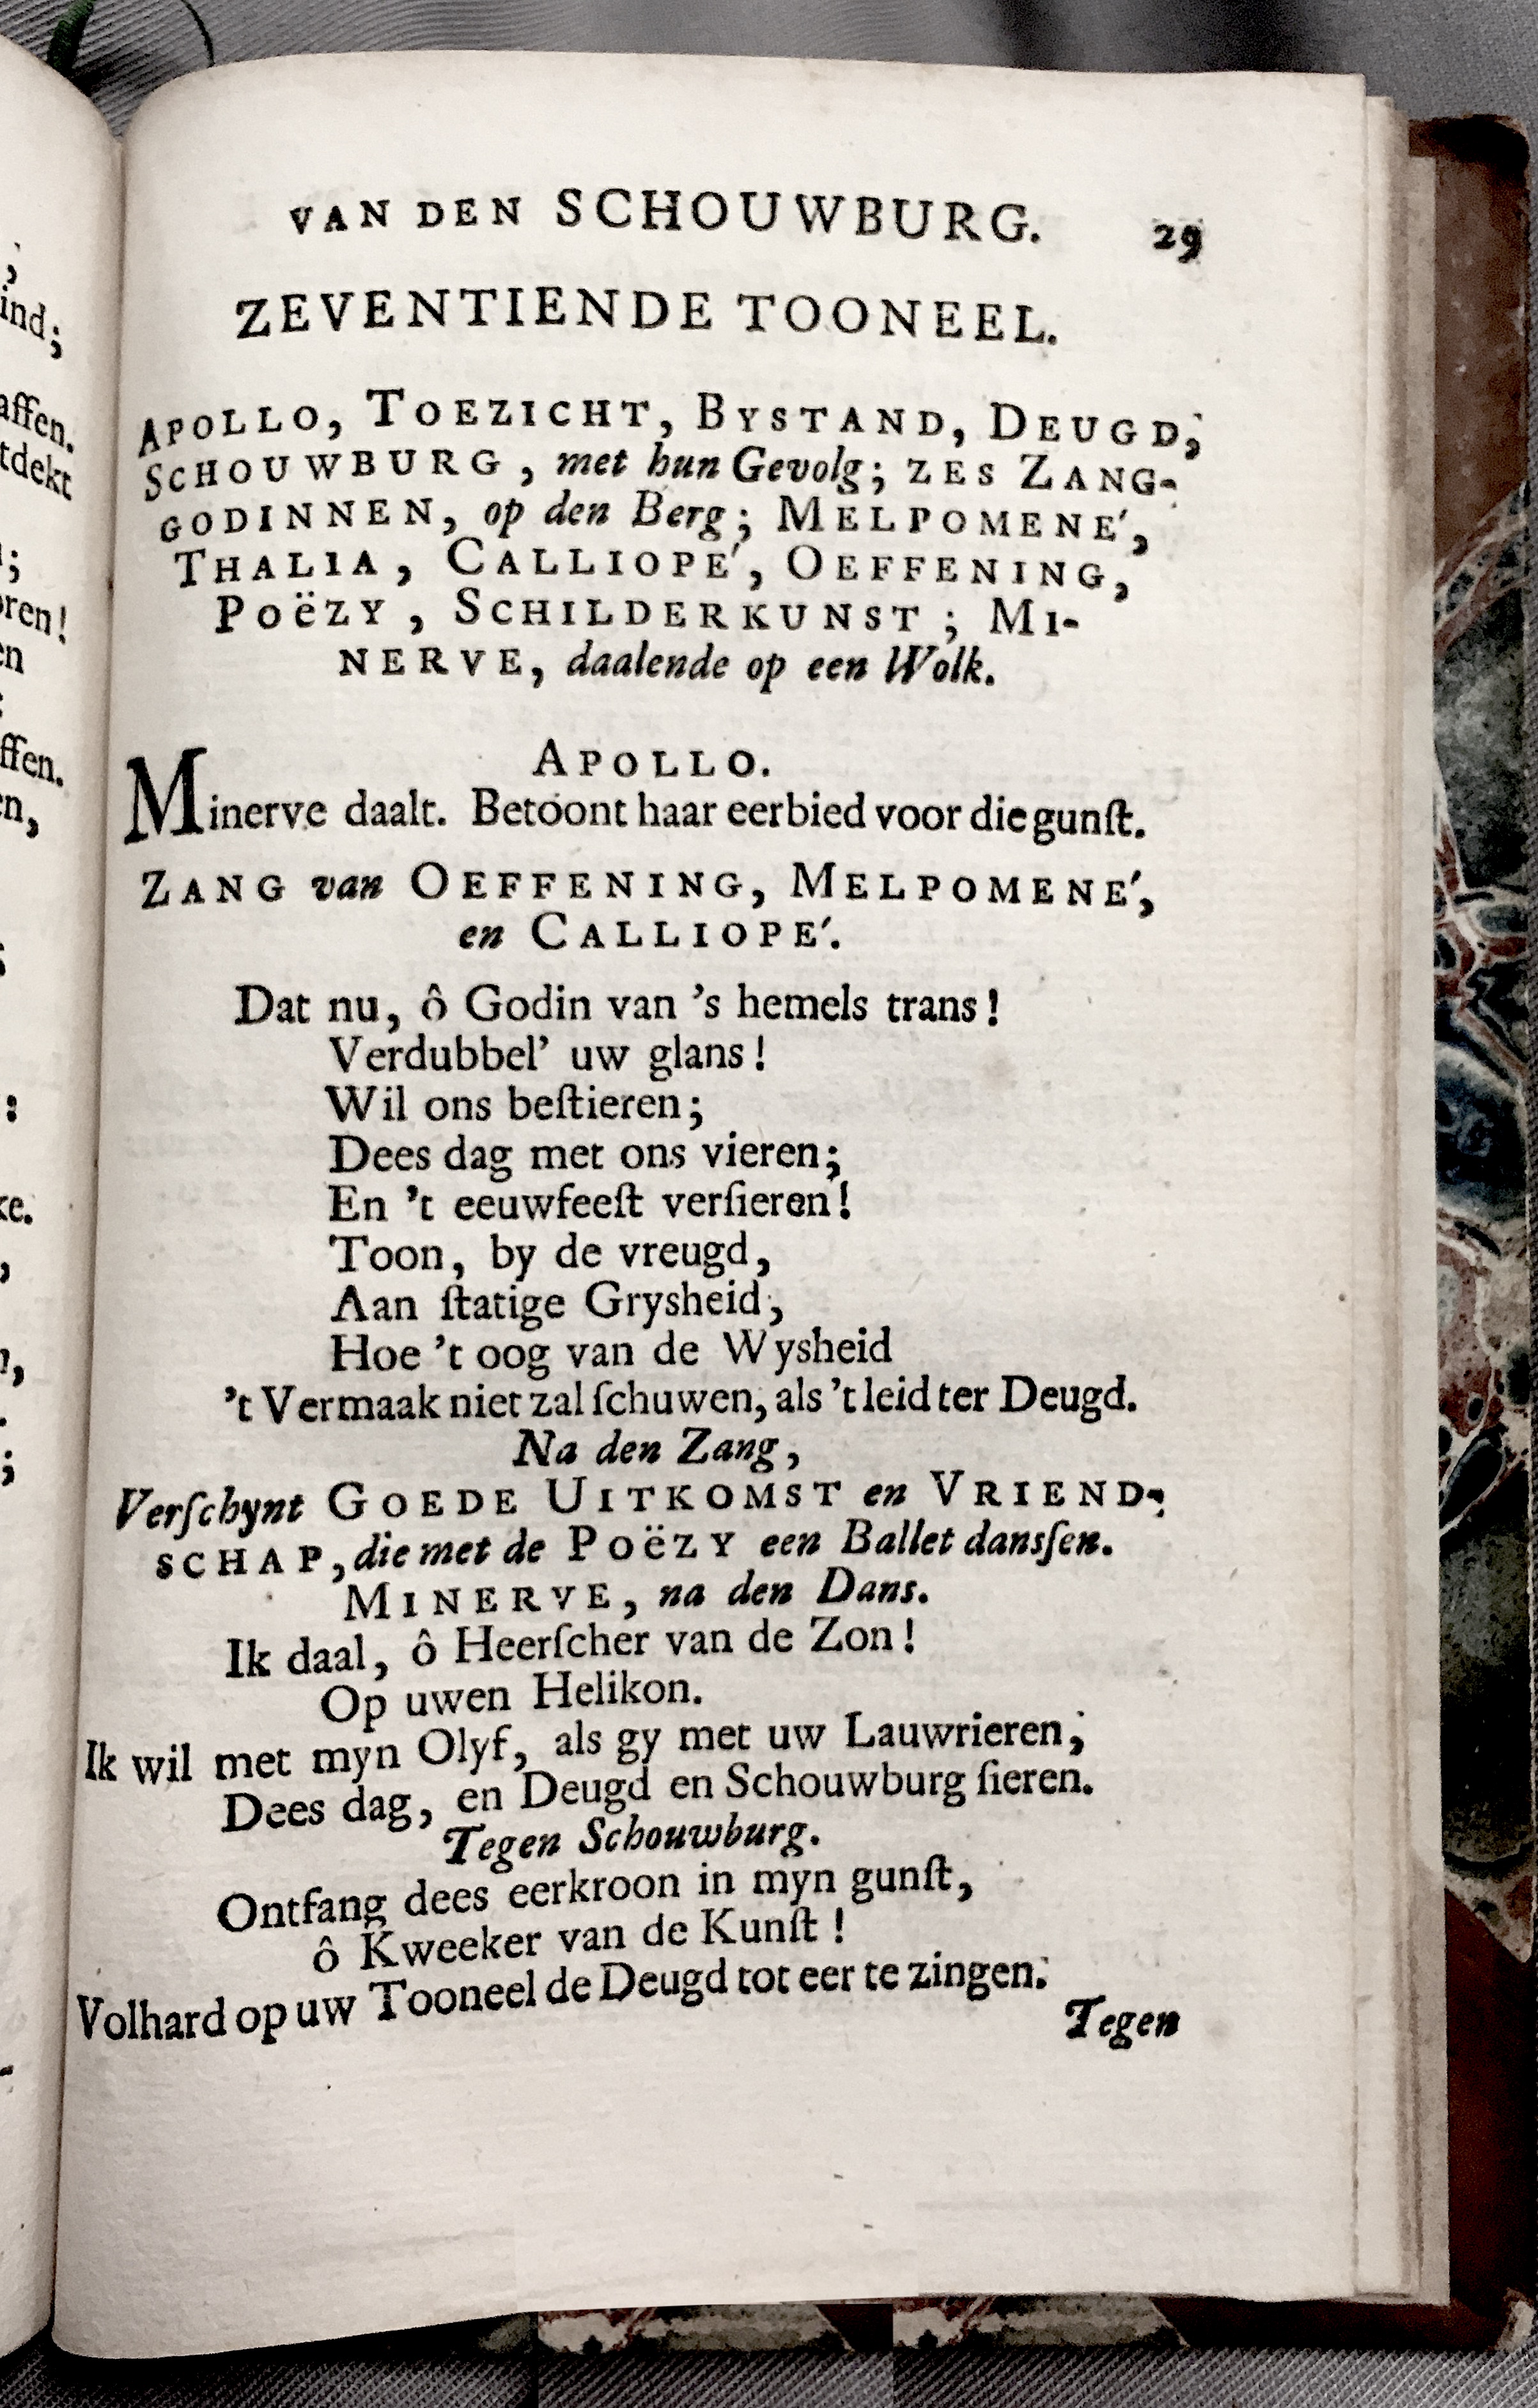 VAN DEN SCHOUWBURG. 29
ZEVENTIENDE TOONEEL.
APOLLO, TOEZICHT, BYSTAND, DEUGD,
SCHOUWBURG, met hun Gevolg; ZES ZANG-
GODINNEN, op den Berg; MELPOMENE´,
THALIA, CALLIOPE´, OEFFENING,
POËZY, SCHILDERKUNST; MI-
NERVE, daalende op een Wolk.
APOLLO.
Minerve daalt. Betoont haar eerbied voor die gunſt.
ZANG van OEFFENING, MELPOMENE´,
en CALLIOPE´.
Dat nu, ô Godin van 's hemels trans!
Verdubbel' uw glans!
Wil ons beſtieren;
Dees dag met ons vieren;
En 't eeuwfeeſt verſieren!
Toon, by de vreugd,
Aan ſtatige Grysheid,
Hoe 't oog van de Wysheid
't Vermaak niet zal ſchuwen, als 't leid ter Deugd.
Na den Zang,
Verſchynt GOEDE UITKOMST en VRIEND-
SCHAP, die met de POËZY een Ballet dansſen.
MINERVE, na den Dans.
Ik daal, ô Heerſcher van de Zon!
Op uwen Helikon.
Ik wil met myn Olyf, als gy met uw Lauwrieren,
Dees dag, en Deugd en Schouwburg ſieren.
Tegen Schouwburg.
Ontfang dees eerkroon in myn gunſt,
ô Kweeker van de Kunſt!
Volhard op uw Tooneel de Deugd tot eer te zingen.
Tegen
ind;
aſſen.
tdekt
;
oren!
en
:
ſſen.
en,
:
ke.
,
,
.
;
-